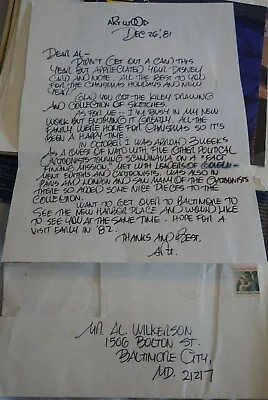 ART WOOD
DEC 26, '81
DEAR AL-
DIDN'T GET OUT A CARD THIS
YEAR BUT APPRECIATED YOUR DISNEY
CARD AND NOTE. ALL THE BEST TO YOU
FOR THE CHRISTMAS HOLIDAYS AND NEW
YEAR!
GLAD YOU GOT THE KILEY DRAWING
AND COLLECTION OF SKETCHES.
AS FOR ME - I'M BUSY IN MY NEW
WORK BUT ENJOYING IT GREATLY. ALL THE
FAMILY WERE HOME FOR CHRISTMAS SO IT'S
BEEN A HAPPY TIME.
IN OCTOBER I WAS ABROAD 3 WEEKS
AS A GUEST OF NATO WITH FIVE OTHER POLITICAL
CARTOONISTS TOURING SCANDINAVIA ON A "FACT
FINDING MISSION". MET LEADERS OF GOVERN-
MENT EDITORS AND CARTOONISTS. WAS ALSO IN
PARIS AND LONDON AND SAW MANY OF THE CARTOONISTS
THERE SO ADDED SOME NICE PIECES TO THE
COLLECTION.
WANT TO GET OVER TO BALTIMORE TO
SEE THE NEW HARBOR PLACE AND WOULD LIKE
TO SEE YOU AT THE SAME TIME. HOPE FOR A
VISIT EARLY IN '82.
THANKS AND BEST,
Art
MR. AL. WILKERSON
1506 BOLTON ST.
BALTIMORE CITY,
MD. 21217